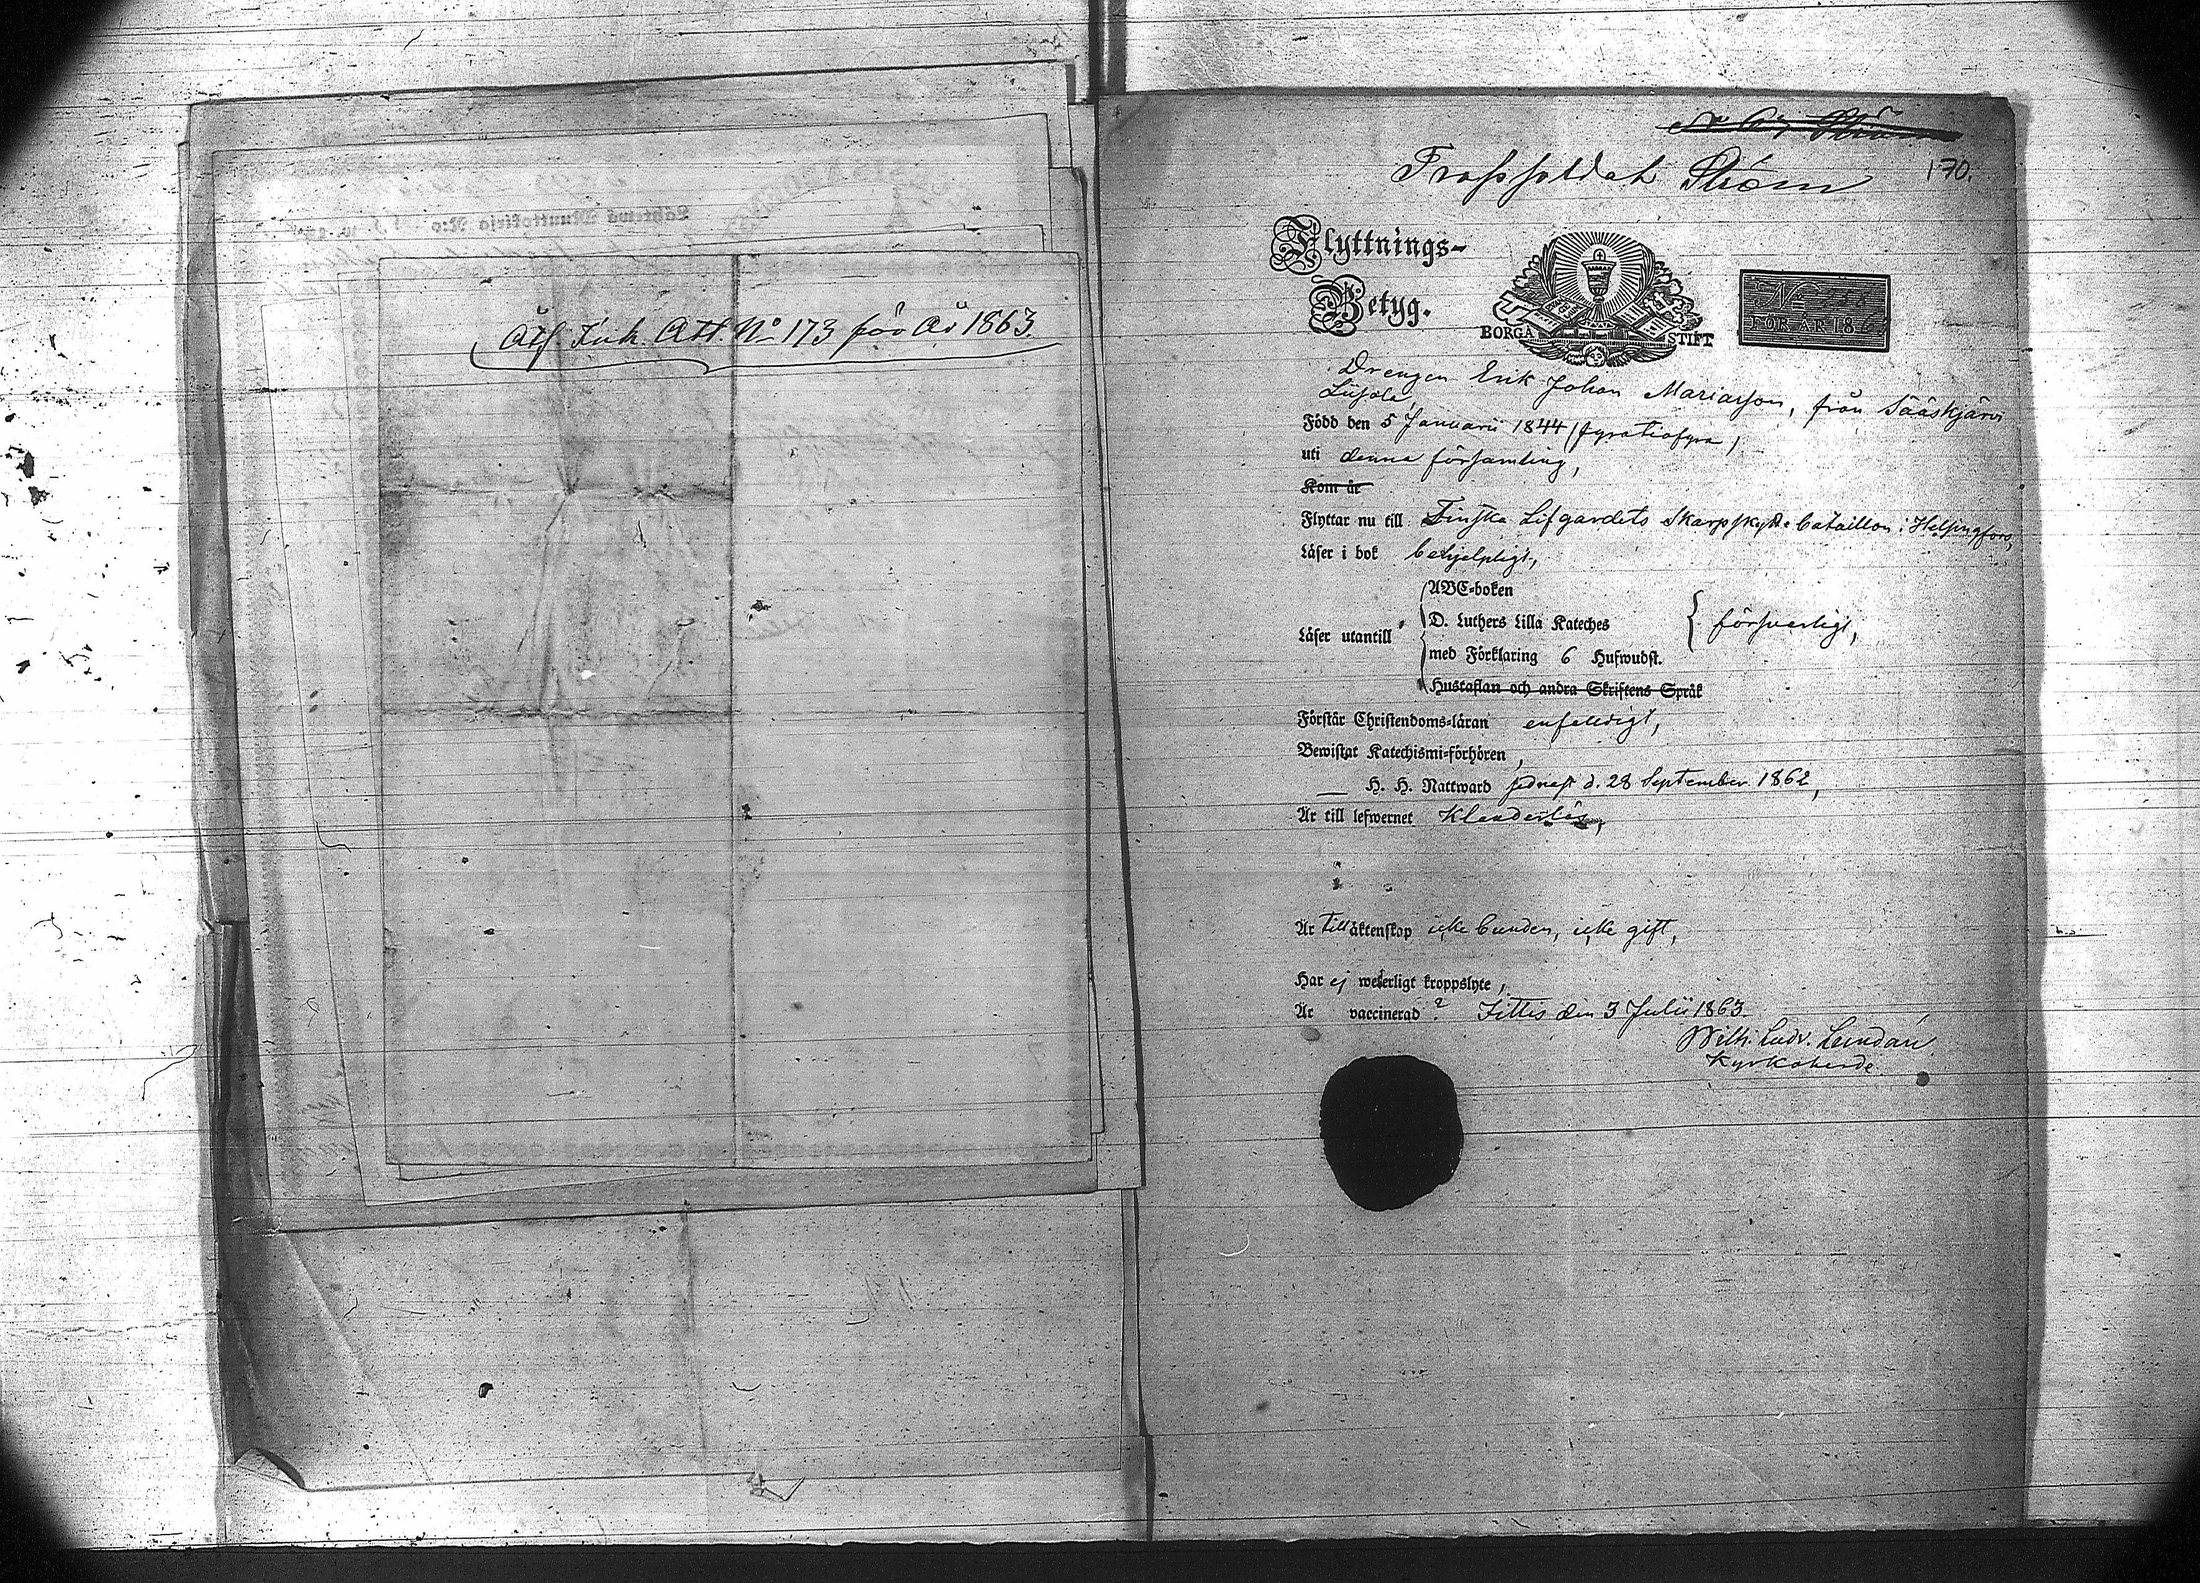 Att. Ink. Att. No 173 för År 1863.
170.
Trossoldat Ström
Flyttnings-
Betyg.
BORGÅ STIFT
No
FÖR ÅR 186
Drengen Erik Johan Mariasson, från Sääskjärvi
Född den 5 Januarii 1844 (fyratiofyra)
uti denna församling,
Kom år
Flyttar nu till Finska Lifgardets Skarpskytte bataillon i Helsingfors,
Läser i bok behjelpligt,
ABC-boken
Läser utantill D. Luthers Lilla Kateches försvarligt,
med Förklaring 6 Hufwudst.
Hustaflan och andra Skriftens Språk
Förstår Christendoms-läran enfaldigt,
Bewistat Katechismi-förhören,
— H. H. Nattward sednast d. 28 September 1862,
Är till lefwernet klanderlös,
Är till äktenskap icke bunden, icke gift,
Har ej wederligt kroppslyte,
Är vaccinerad? Jittis den 3 Julii 1863
Wilh. Ludv. Lundán
Kyrkoherde